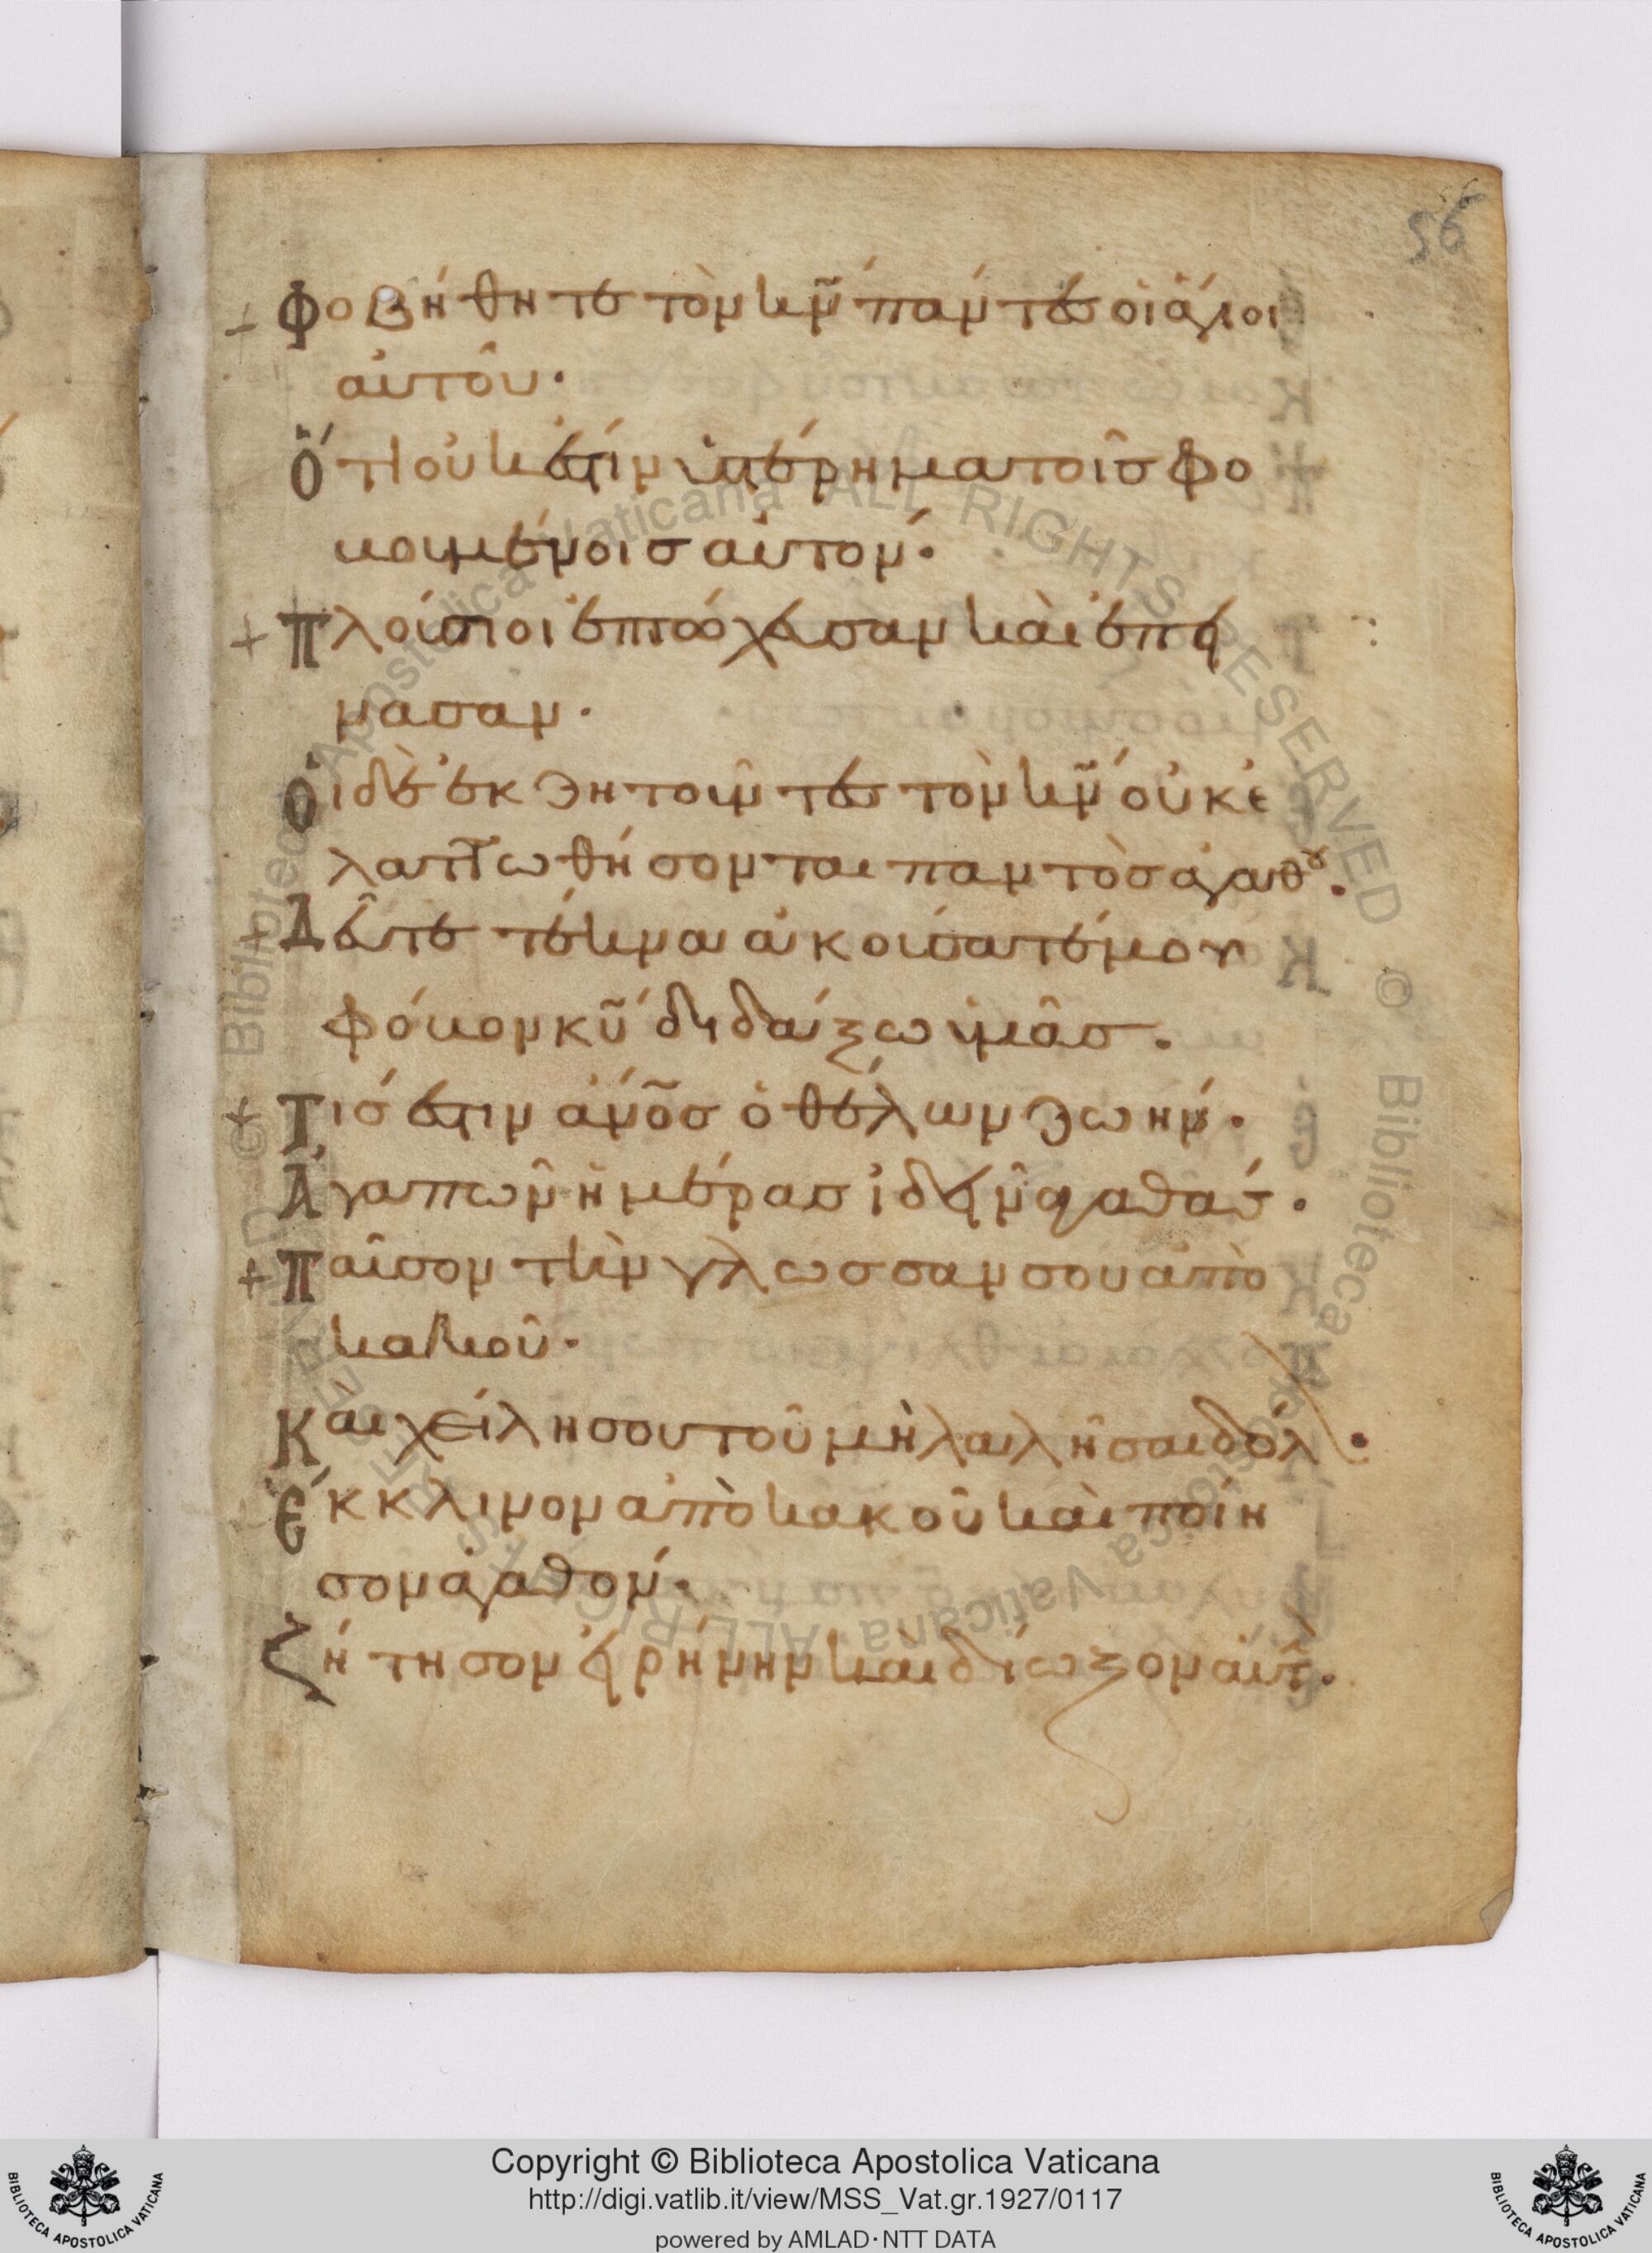 56
+ Φοβήθητε τὸν κ̅ν̅ πάντες οἱ ἅγιοι
αὐτοῦ·
Ὅτι οὐκ ἔστιν ὑστέρημα τοῖς φο
βουμένοις αὐτόν·
+ Πλούσιοι ἐπτώχευσαν καὶ ἐπεί
νασαν·
Οἱ δὲ ἐκζητοῦντες τὸν κ̅ν̅ οὐκ ἐ
λαττωθήσονται παντὸς ἀγαθοῦ.
+ Δεῦτε τέκνα ἀκούσατέ μου
φόβον κ̅υ̅ διδάξω ὑμᾶς.
+ Τίς ἐστιν ἀ̅ν̅ο̅ς̅ ὁ θέλων ζωήν·
Ἀγαπῶν ἡμέρας ἰδεῖν ἀγαθάς·
+ Παῦσον τὴν γλῶσσαν σου ἀπὸ
κακοῦ·
Καὶ χείλη σου τοῦ μὴ λαλῆσαι δόλ·
Ἔκκλινον ἀπὸ κακοῦ καὶ ποίη
σον ἀγαθόν·
Ζήτησον εἰρήνην καὶ δίωξον αὐτ·
Copyright © Biblioteca Apostolica Vaticana
http://digi.vatlib.it/view/MSS_Vat.gr.1927/0117
powered by AMLAD·NTT DATA
BIBLIOTECA APOSTOLICA VATICANA
BIBLIOTECA APOSTOLICA VATICANA